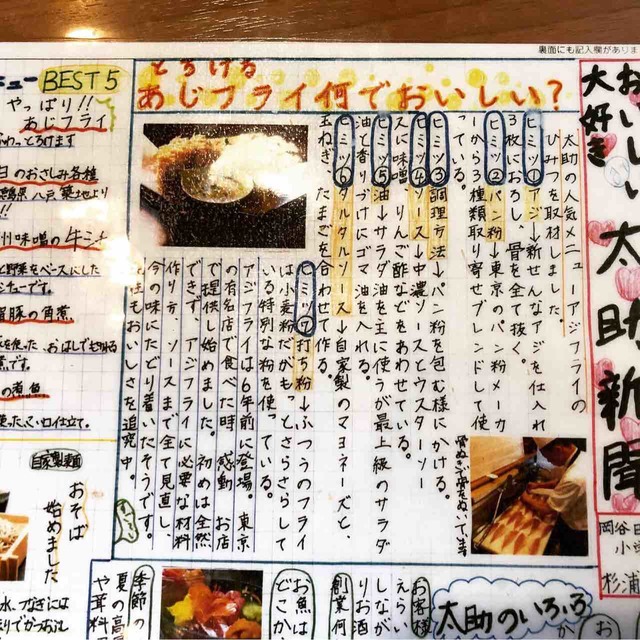 裏面にも記入欄がありま
おいしい太助新聞
大好き
岡谷
小
杉浦
とろける
あじフライ何でおいしい?
太助の人気メニューアジフライの
ひみつを取材しました。
ヒミツ①アジ→新せんなアジを仕入れ
3枚におろし、骨を全て抜く。
ヒミツ②パン粉→東京のパン粉メーカ
ーから3種類取り寄せブレンドして使
っている。
ヒミツ③調理方法→パン粉を包む様にかける。
ヒミツ④ソース→中濃ソースとウスターソー
スに味噌、りんご酢などをあわせている。
ヒミツ⑤油→サラダ油を主に使うが最上級のサラダ
油と香りづけにゴマ油を入れる。
ヒミツ⑥タルタルソース→自家製のマヨネーズと、
玉ねぎ、たまごを合わせて作る。
ヒミツ⑦打ち粉→ふつうのフライ
は小麦粉だがもっとさらさらして
いる特別な粉を使っている。
アジフライは6年前に登場。東京
の有名店で食べた時、感動、お店
で提供し始めました。初めは全然
できず、アジフライに必要な材料
作り方、ソースまで全て見直し、
今の味にたどり着いたそうです。
もおいしさを追究中。
骨ぬきで骨をぬいています
ュー BEST5
やっぱり!!
あじフライ
とろけます
日のおさしみ各種
八戸 築地より
!!
州味噌の牛シチ
と野菜をベースにした
チューです。
豚の角煮
を使った、おはしでも切れる
煮です。
の煮魚
使った、こい口仕立て。
自家製麺
おそば
始めました
水、つなぎには
季節の
夏の高
や茸料
お魚は
どこか
お客様
えらい
しなが
りお酒
創業何
太助のいろいろ
お